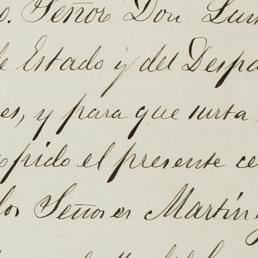 Señor Don Luis
de Estado y del Despa
es, y para que surta
pido el presente ce
los Señores Martín